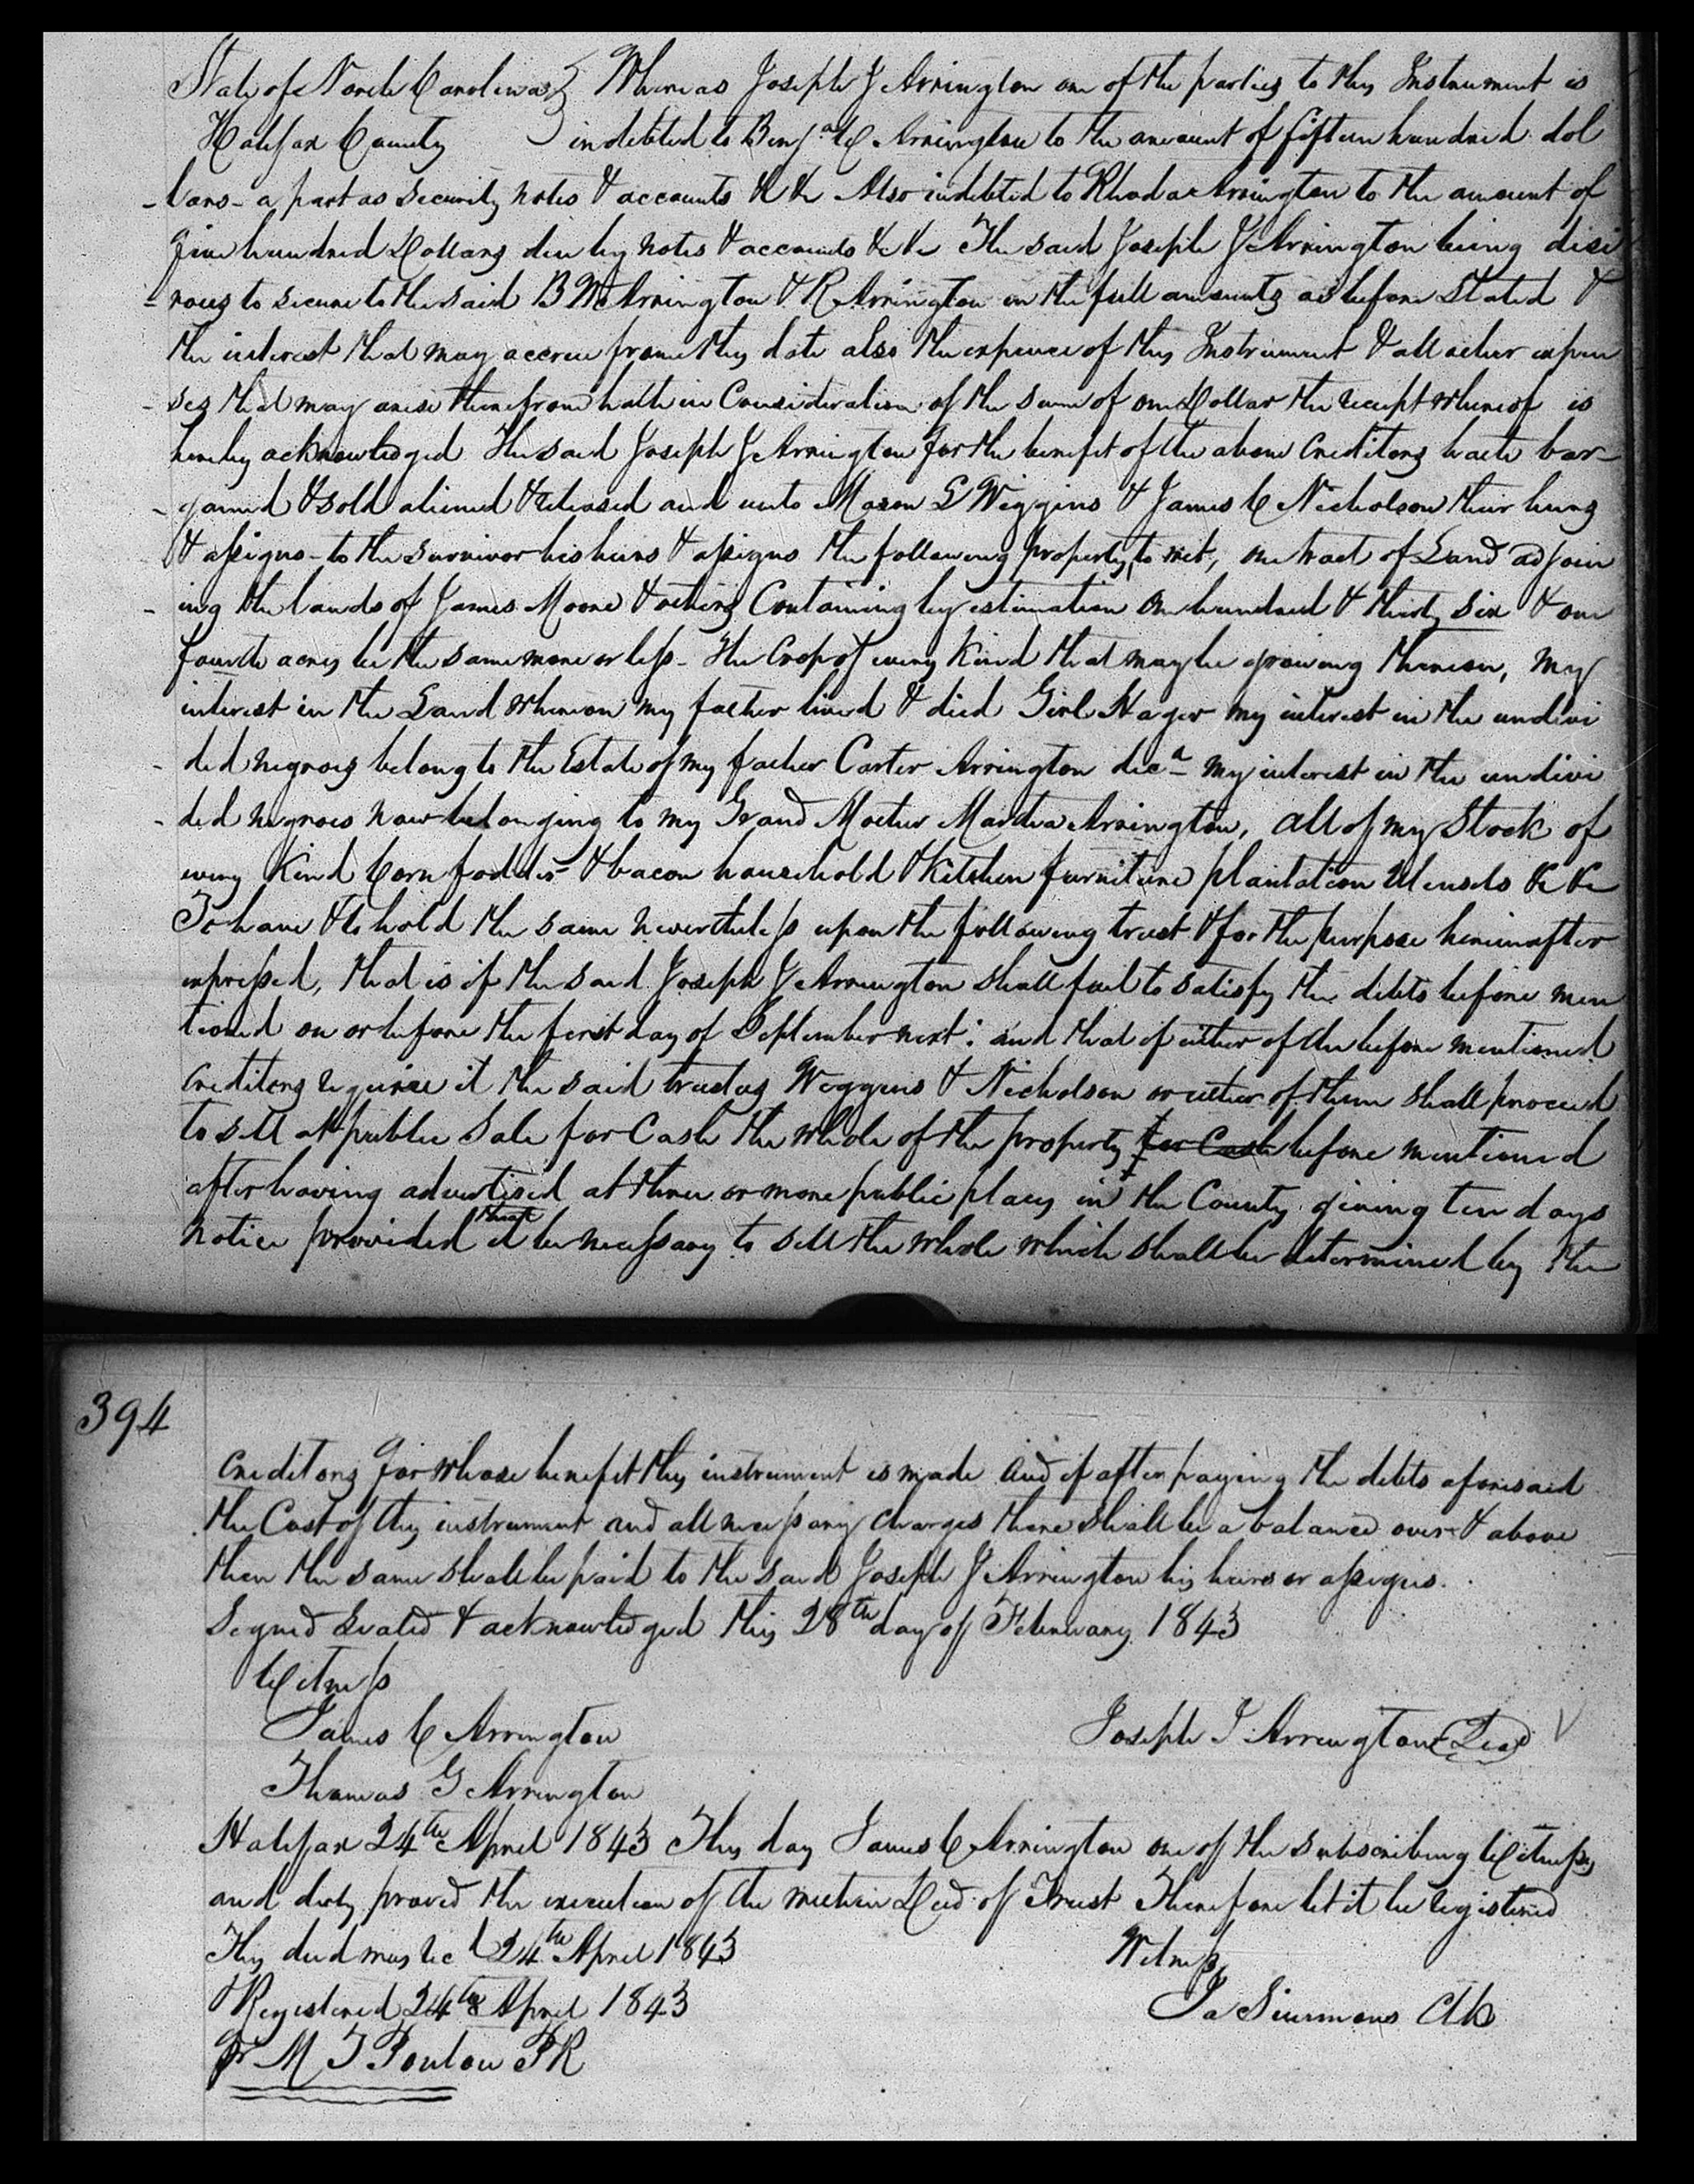 State of North Carolina } Whereas Joseph J Arrington one of the parties to this Instrument is
Halifax County } indebted to Benjn W Arrington to the amount of fifteen hundred dol
-lars - a part as security notes & accounts &c &c Also indebted to Rhoda Arrington to the amount of
five hundred Dollars due by notes & accounts &c &c The said Joseph J Arrington being desi
-rous to secure to the said B W Arrington & R Arrington in the full amounts as before Stated &
the interest that may accrue from this date also the expence of this Instrument & all other expen
-ses that may arise therefrom hath in Consideration of the sum of one Dollar the receipt whereof is
hereby acknowledged The said Joseph J Arrington for the benefit of the above Creditors hath bar-
-gained & sold aliened & released and unto Mason L Wiggins & James C Nicholson their heirs
& assigns - to the survivor his heirs & assigns the following property, to wit, one tract of Land adjoin
-ing the lands of James Moore & others Containing by estimation one hundred & thirty six & one
fourth acres be the same more or less - The Crop of every Kind that may be growing thereon, my
interest in the Land whereon my father lived & died Girl Hager my interest in the undivi
-ded negroes belong to the Estate of my father Carter Arrington decd my interest in the undivi
-ded negroes now belonging to my Grand Mother Martha Arrington, all of my Stock of
every Kind Corn fodder & bacon household & Kitchen furniture plantation Utensels &c &c
To have & to hold the same nevertheless upon the following trust & for the purpose hereinafter
expressed, that is if the said Joseph J Arrington shall fail to satisfy the debts before men
tioned on or before the first day of September next; and that if either of the before mentioned
Creditors require it the said trustees Wiggins & Nicholson or either of them shall proceed
to sell at public Sale for Cash the whole of the property for Cash before mentioned
after having advertised at three or more public places in the County giving ten days
notice provided it be necessary to sell the whole which shall be determined by the
394
Creditors for whose benefit this instrument is made and if after paying the debts aforesaid
the Cost of this instrument and all necessary charges there shall be a balance over & above
then the same shall be paid to the said Joseph J Arrington his heirs or assigns.
Signed Sealed & acknowledged this 28th day of February 1843
Witness
James C Arrington
Joseph J Arrington (Seal)
Thomas G Arrington
Halifax 24th April 1843 This day James C Arrington one of the subscribing Witness
and duly proved the execution of the within Deed of Trust Therefore let it be registered
This deed was recd 24th April 1843
Witness
& Registered 24th April 1843
Ja Simmons Clk
pr M T Ponton PR